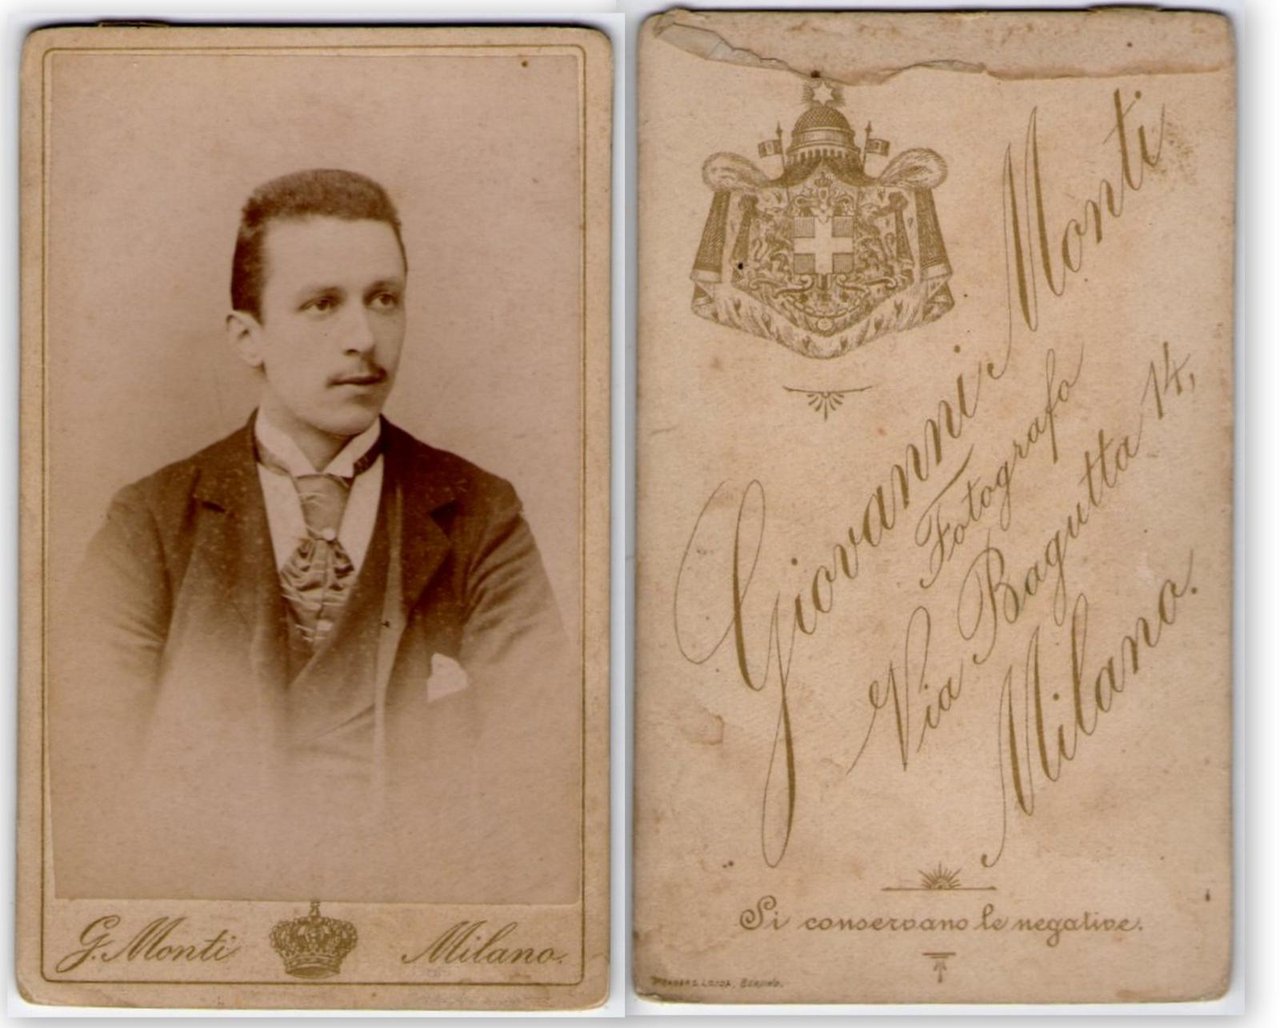 G. Monti
Milano.
Giovanni Monti
Fotografo
Via Bagutta 14,
Milano.
Si conservano le negative.